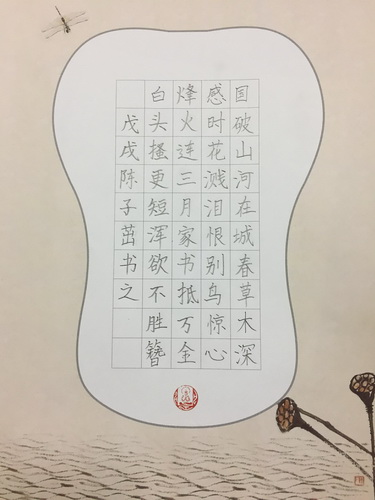 国破山河在城春草木深
感时花溅泪恨别鸟惊心
烽火连三月家书抵万金
白头搔更短浑欲不胜簪
戊戌陈子茁书之